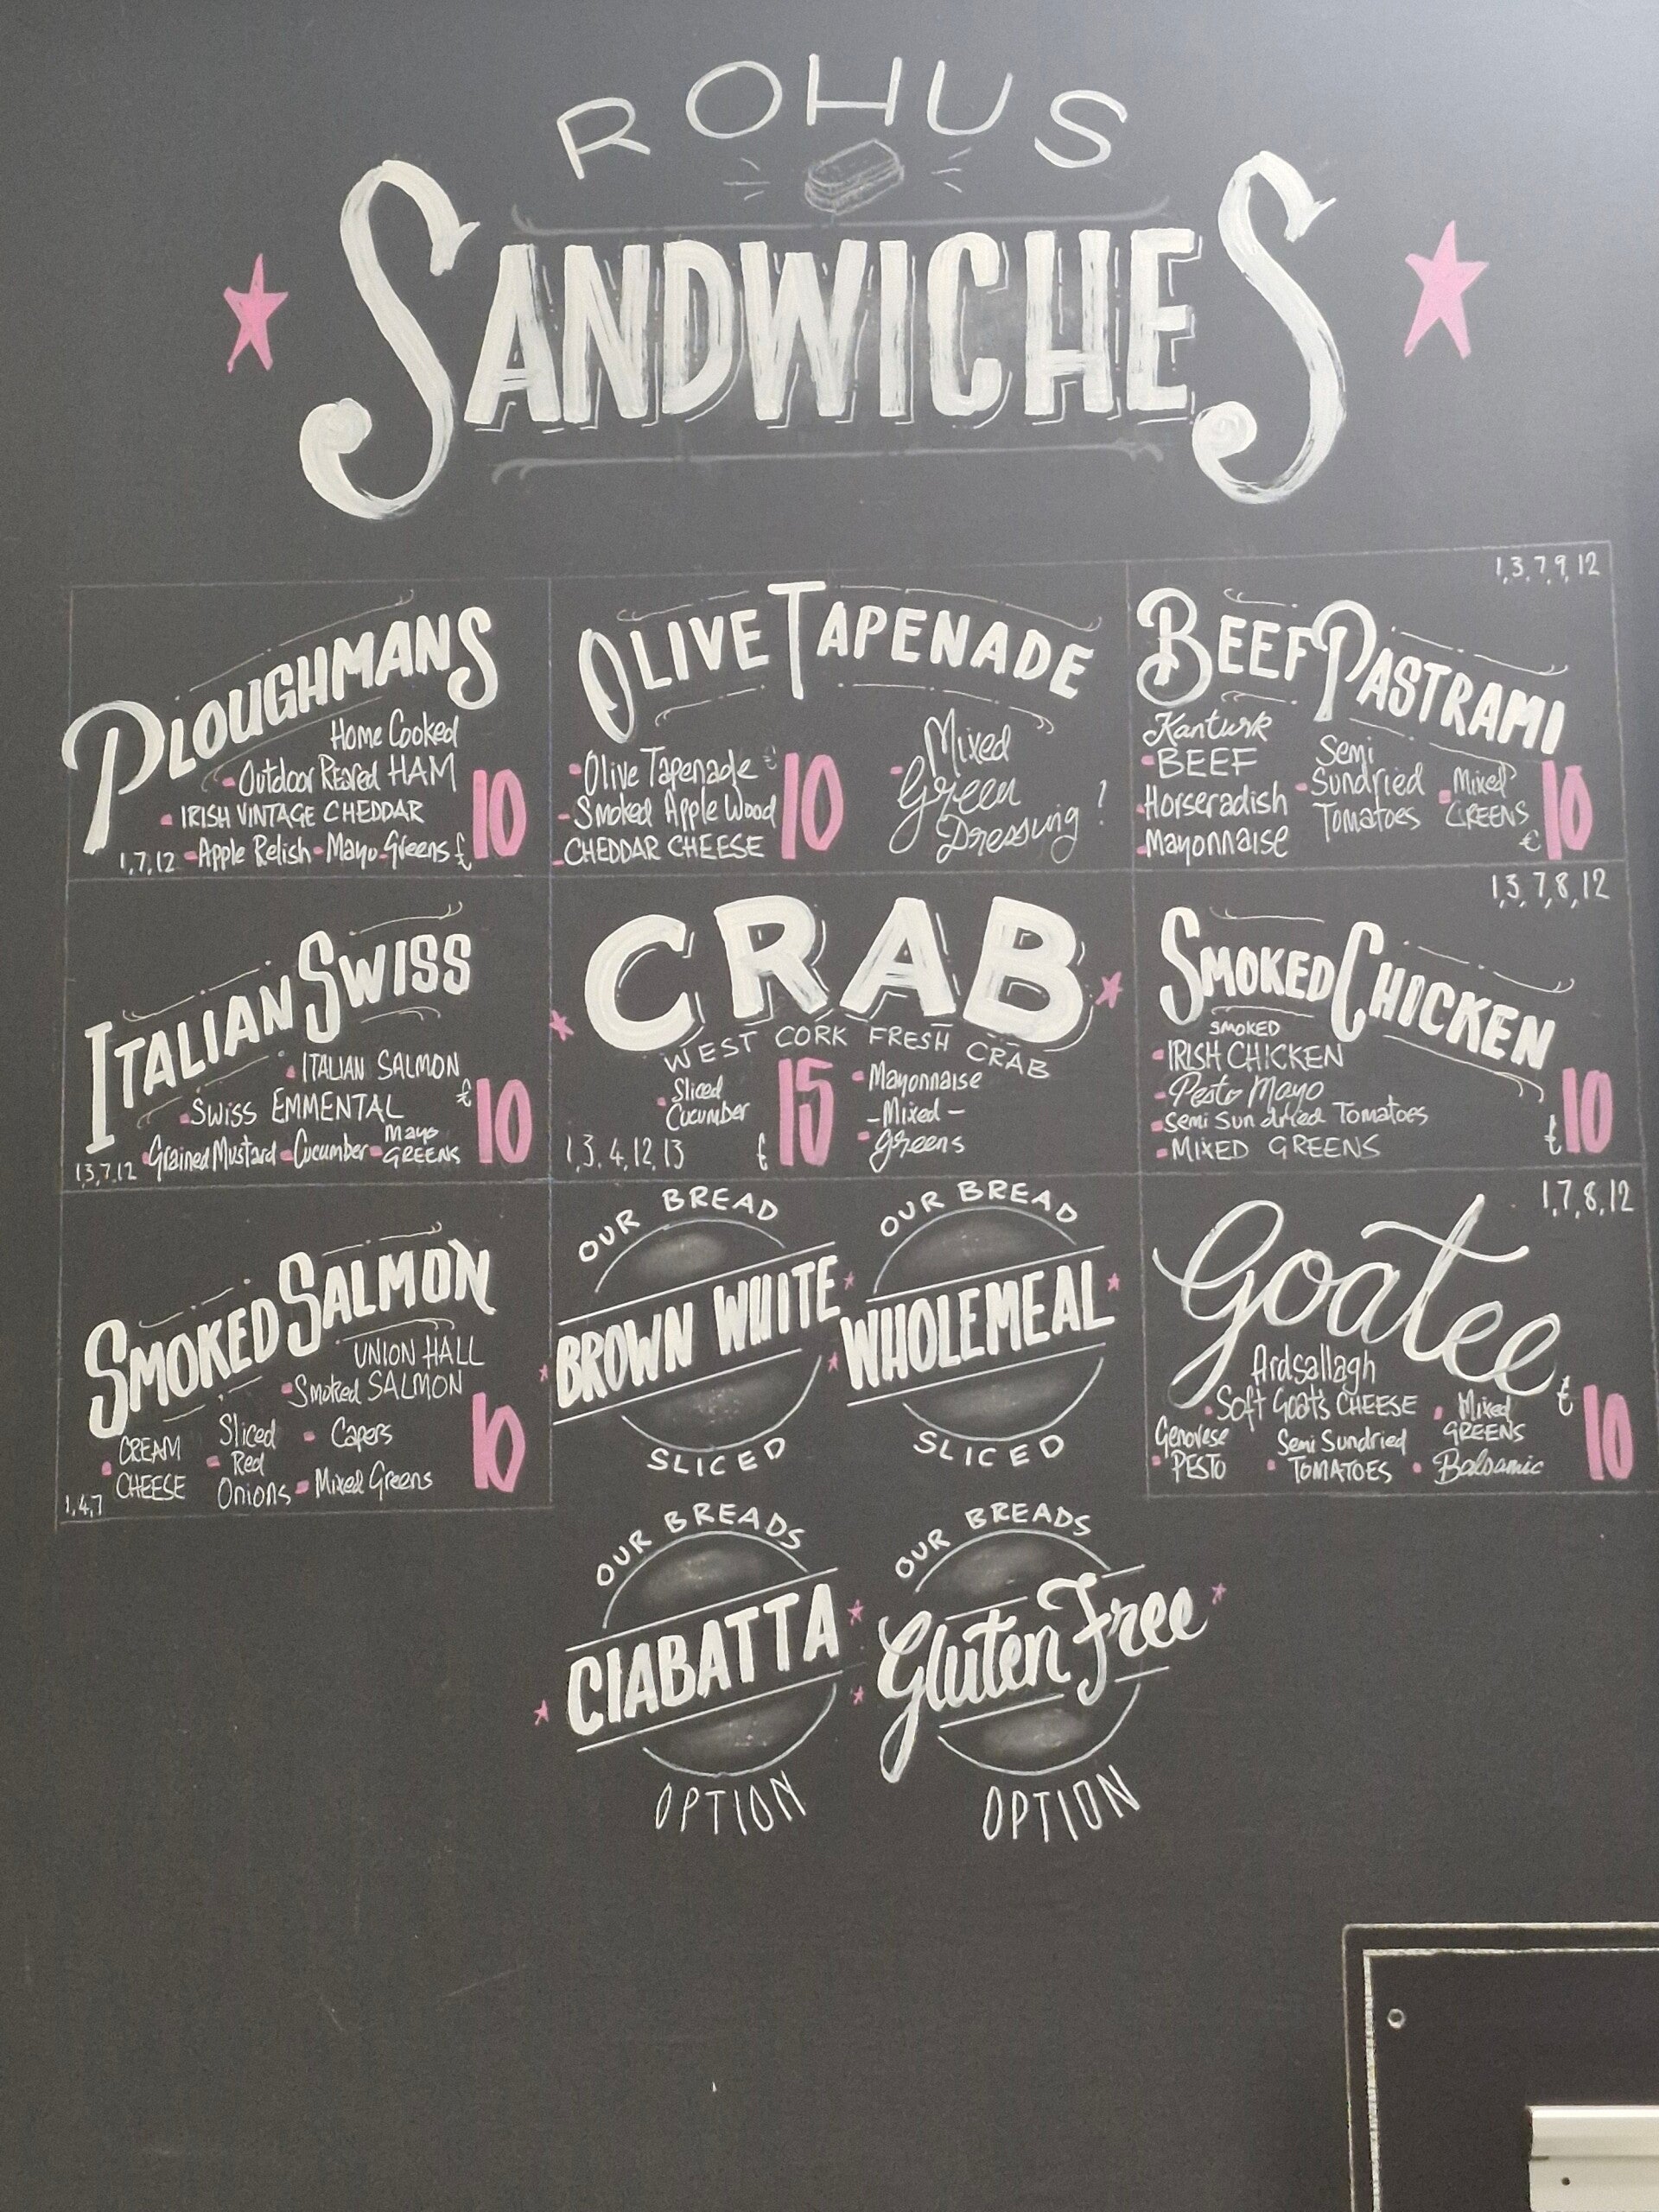 ROHUS
SANDWICHES
PLOUGHMANS
Home Cooked
Outdoor Reared HAM
IRISH VINTAGE CHEDDAR
1,7,12 - Apple Relish - Mayo - Greens € 10
OLIVE TAPENADE
- Olive Tapenade
- Smoked Apple Wood
- CHEDDAR CHEESE
€ 10
- Mixed
Green
Dressing !
1,3,7,9,12
BEEF PASTRAMI
Kanturk
- BEEF
- Horseradish
- Mayonnaise
- Semi
Sundried
Tomatoes
- Mixed
GREENS
€ 10
ITALIAN SWISS
- ITALIAN SALMON
- SWISS EMMENTAL
- Grained Mustard - Cucumber - Mayo
GREENS
1,3,7,12
€ 10
CRAB
WEST CORK FRESH CRAB
- Sliced
Cucumber
€ 15
- Mayonnaise
- Mixed -
- greens
1,3,4,12,13
1,3,7,8,12
SMOKED CHICKEN
SMOKED
- IRISH CHICKEN
- Pesto Mayo
- Semi Sun dried Tomatoes
- MIXED GREENS
€ 10
SMOKED SALMON
UNION HALL
- Smoked SALMON
- CREAM
CHEESE
- Sliced
Red
Onions
- Capers
- Mixed Greens
10
1,4,7
OUR BREAD
BROWN WHITE
SLICED
OUR BREAD
WHOLEMEAL
SLICED
1,7,8,12
Goatee
Ardsallagh
- Soft Goat's CHEESE
- Mixed
GREENS
Genovese
- PESTO
- Semi Sundried
TOMATOES
- Balsamic
€ 10
OUR BREADS
CIABATTA
OPTION
OUR BREADS
Gluten Free
OPTION